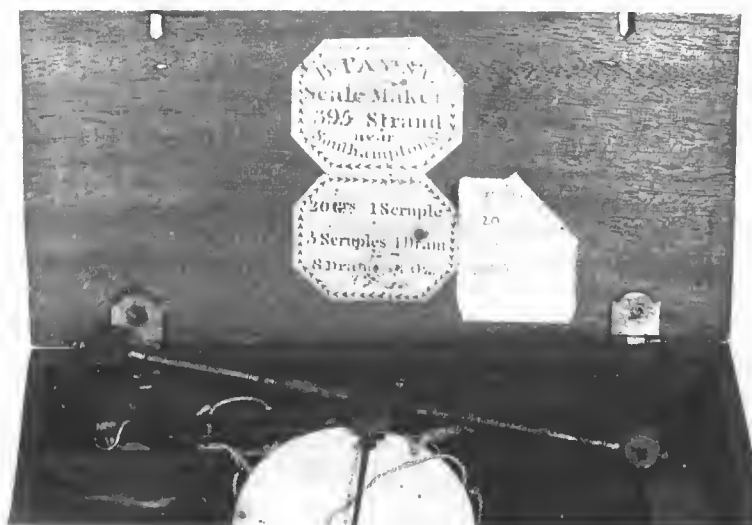 Scale Maker
395 Strand
near
Southampton
20 Grs 1 Scruple
3 Scruples 1 Dram
8 Drams
20